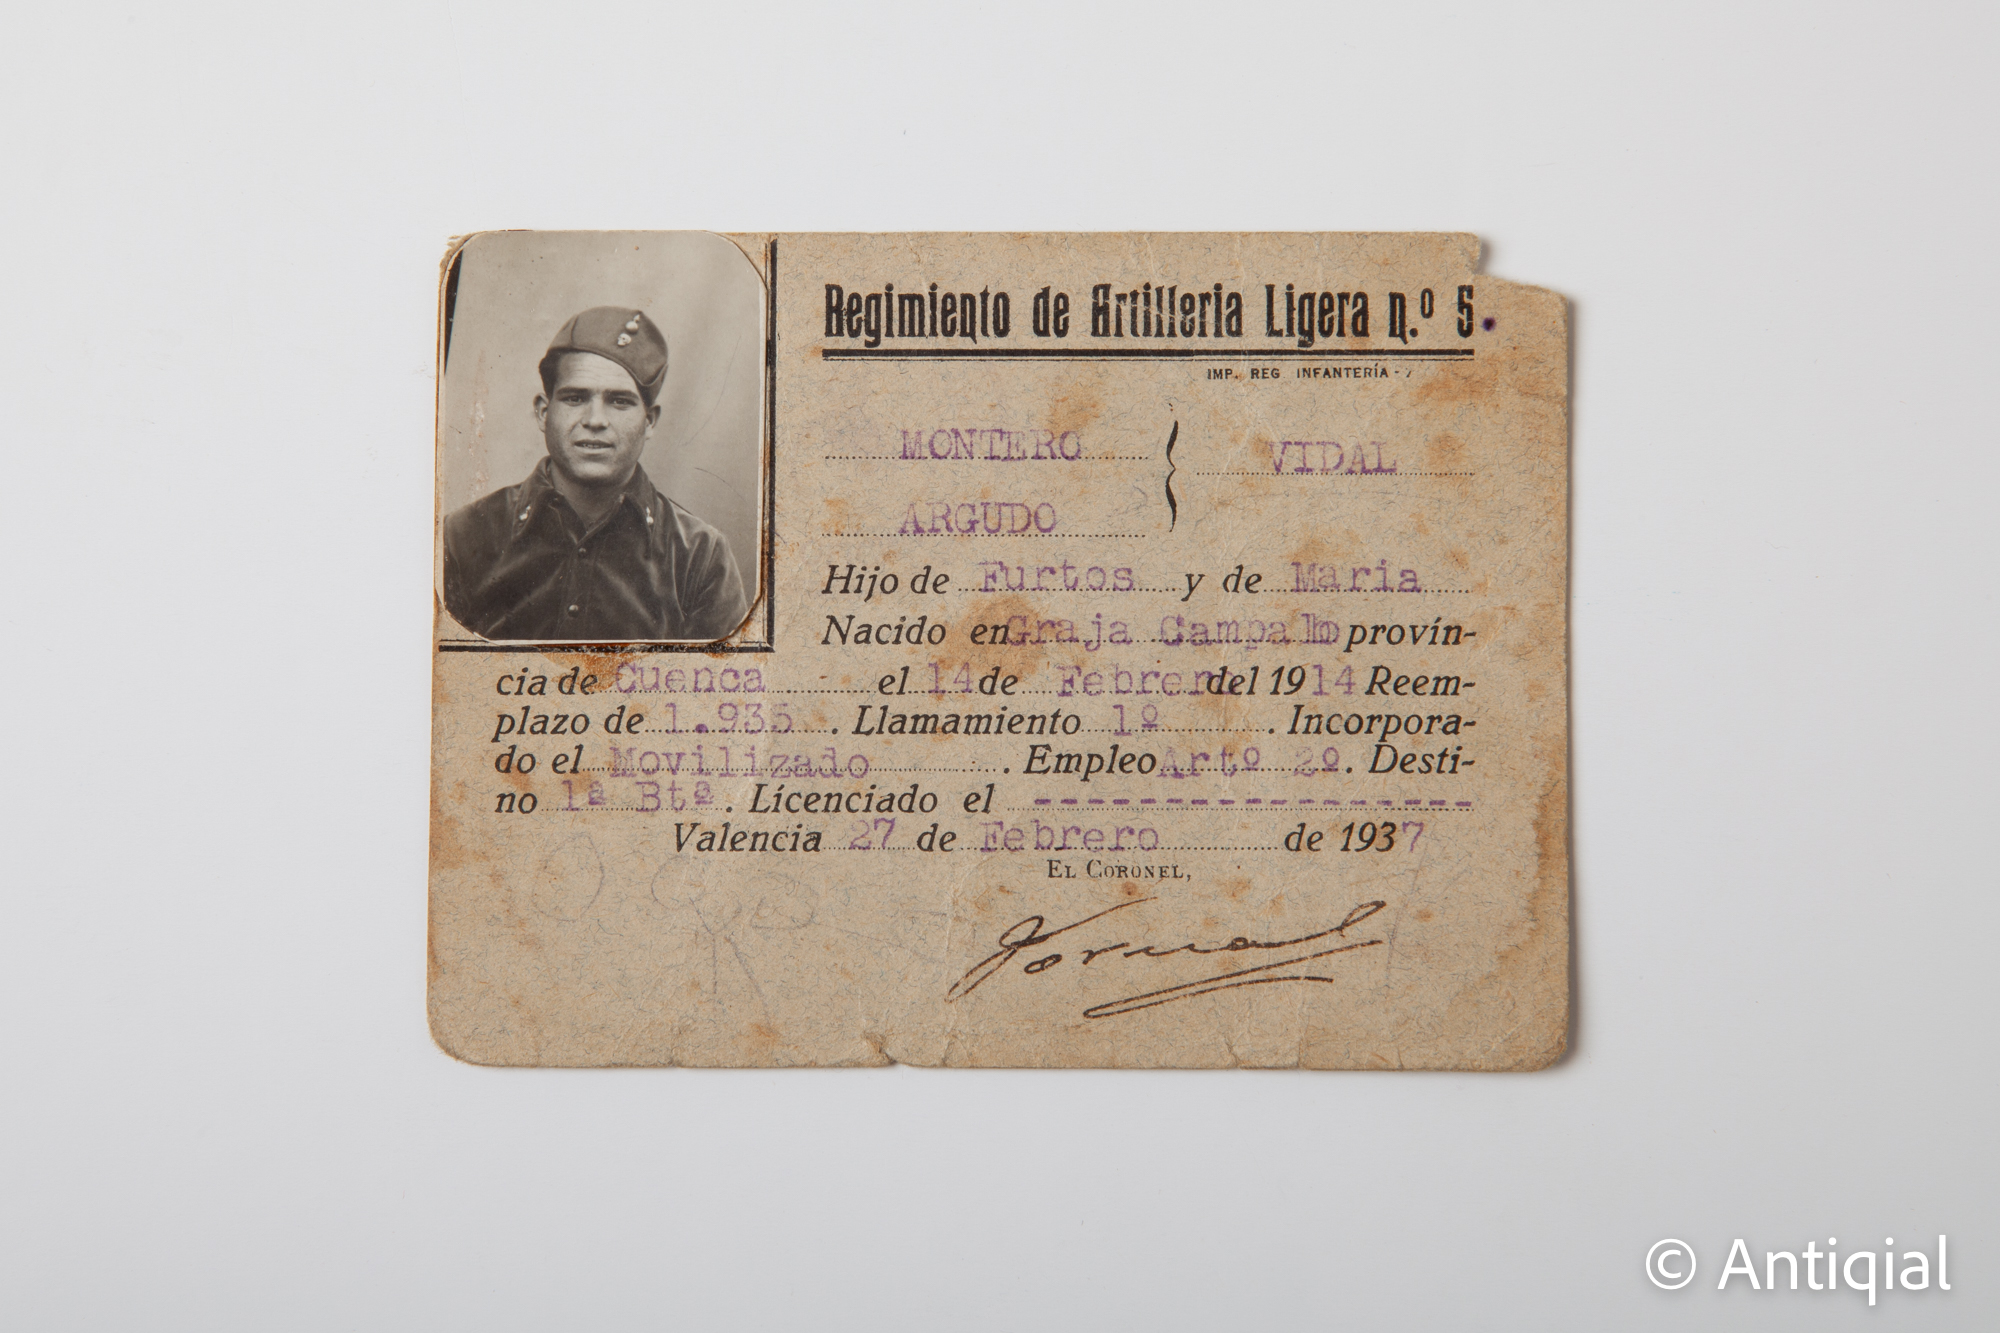 Regimiento de Artilleria Ligera n.º 5.
IMP. REG. INFANTERÍA - 7
MONTERO
VIDAL
ARGUDO
Hijo de Furtos y de Maria
Nacido en Graja Campalbo provin-
cia de Cuenca el 14 de Febrero del 1914 Reem-
plazo de 1.935. Llamamiento 1º. Incorpora-
do el Movilizado. Empleo Artº 2º. Desti-
no 1ª Btª. Licenciado el -----------------
Valencia 27 de Febrero de 1937
EL CORONEL,
© Antiqial